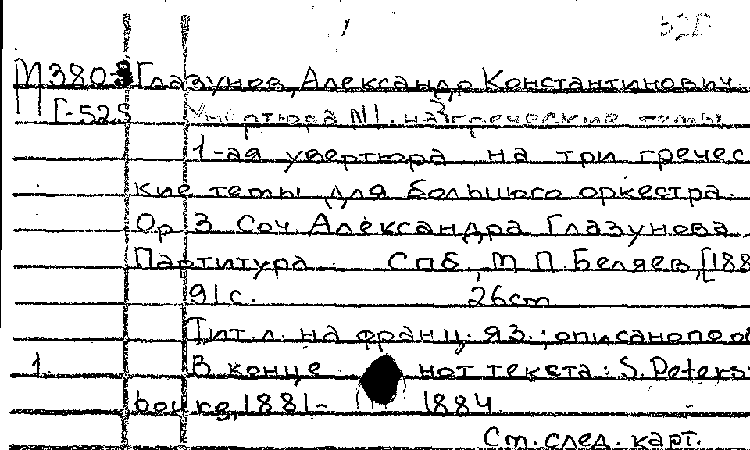 М380-3 Глазунов, Александр Константинович.
Г-525 Увертюра №1. на 3 греческие темы
1-ая увертюра на три гречес
кие темы для большого оркестра.
Ор 3 Соч Александра Глазунова
Партитура Спб, М П. Беляев, [188
91с. 26cm
Тит. л. на франц. яз.; описано по об
1 В конце нот текста: S. Peters-
bourg, 1881- 1884
См. след. карт.